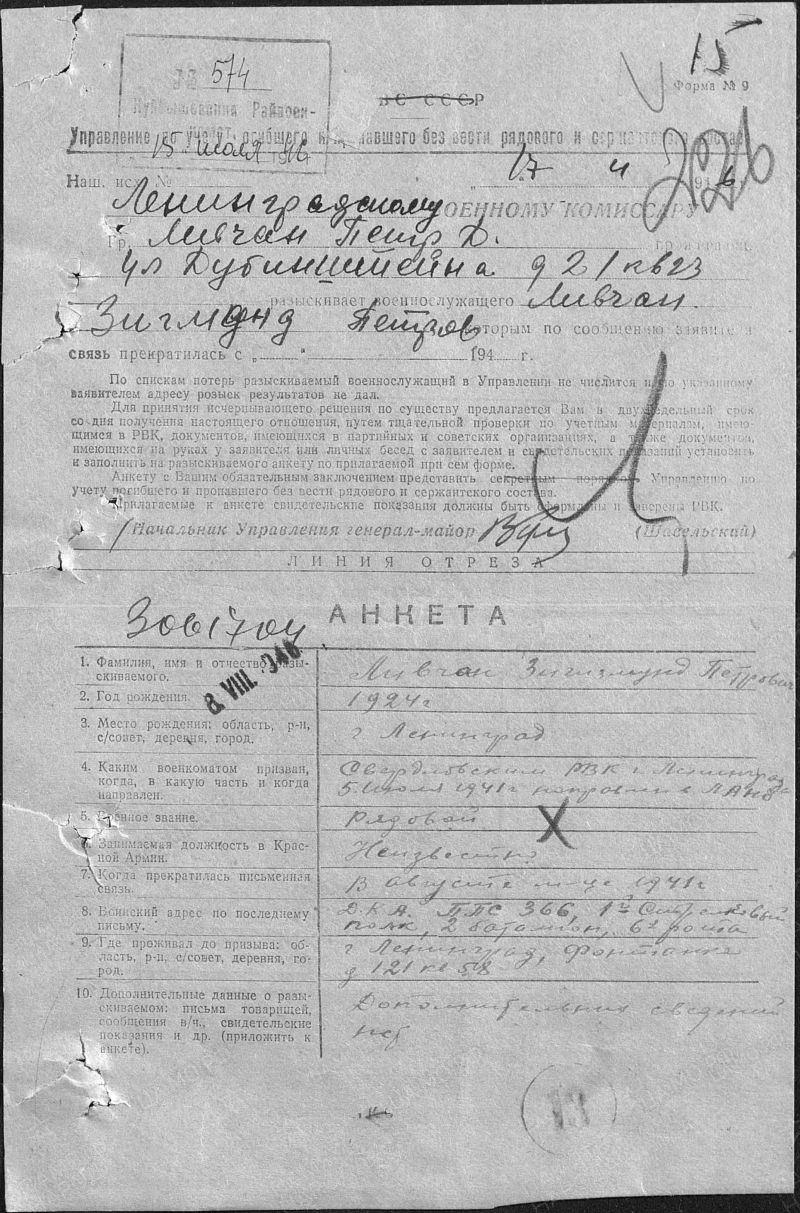 15
№ 574
Форма № 9
Куйбышевский Райвоен-
ВС СССР
Управление по учету погибшего и пропавшего без вести рядового и сержантского состава
15 июля 46
226
Наш. исх. № 17 4 1946
Ленинградскому ВОЕННОМУ КОМИССАРУ
Гр. Ливчан Петр Д.
д 21 кв 23
разыскивает военнослужащего Ливчан
Зигмонд Петров которым по сообщению заявителя
связь прекратилась с „ “ 194 г.
По спискам потерь разыскиваемый военнослужащий в Управлении не числится и по указанному
заявителем адресу розыск результатов не дал.
Для принятия исчерпывающего решения по существу предлагается Вам в двухнедельный срок
со дня получения настоящего отношения, путем тщательной проверки по учетным материалам, имею-
щимся в РВК, документов, имеющихся в партийных и советских организациях, а также документов,
имеющихся на руках у заявителя или личных бесед с заявителем и свидетельских показаний установить
и заполнить на разыскиваемого анкету по прилагаемой при сем форме.
Анкету с Вашим обязательным заключением представить секретным порядком Управлению по
учету погибшего и пропавшего без вести рядового и сержантского состава.
Прилагаемые к анкете свидетельские показания должны быть оформлены и заверены РВК.
Начальник Управления генерал-майор (Шавельский)
ЛИНИЯ ОТРЕЗА
АНКЕТА
3061704
8. VIII. 946
1. Фамилия, имя и отчество разы-
скиваемого.
Ливчан Зигизмунд Петрович
2. Год рождения.
1924г
3. Место рождения: область, р-н,
с/совет, деревня, город.
г Ленинград
4. Каким военкоматом призван,
когда, в какую часть и когда
направлен.
Свердловским РВК г Ленинграда
5 Июля 1941г направлен в ЛАНО
5. Военное звание.
Рядовой
6. Занимаемая должность в Крас-
ной Армии.
Неизвестно
7. Когда прекратилась письменная
связь.
В августе м-це 1941г
8. Воинский адрес по последнему
письму.
Д.К.А. ППС 366, 1й Стрелковый
полк, 2 батальон, 6я рота
9. Где проживал до призыва: об-
ласть, р-н, с/совет, деревня, го-
род.
г Ленинград, Фонтанка
д 121 кв 58
10. Дополнительные данные о разы-
скиваемом: письма товарищей,
сообщения в/ч., свидетельские
показания и др. (приложить к
анкете).
Дополнительних сведений
нет